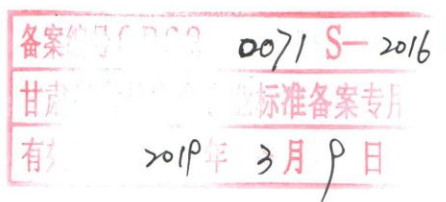 备案编号 0071 S— 2016
甘肃 业标准备案专用
有效 2019年 3月 9日